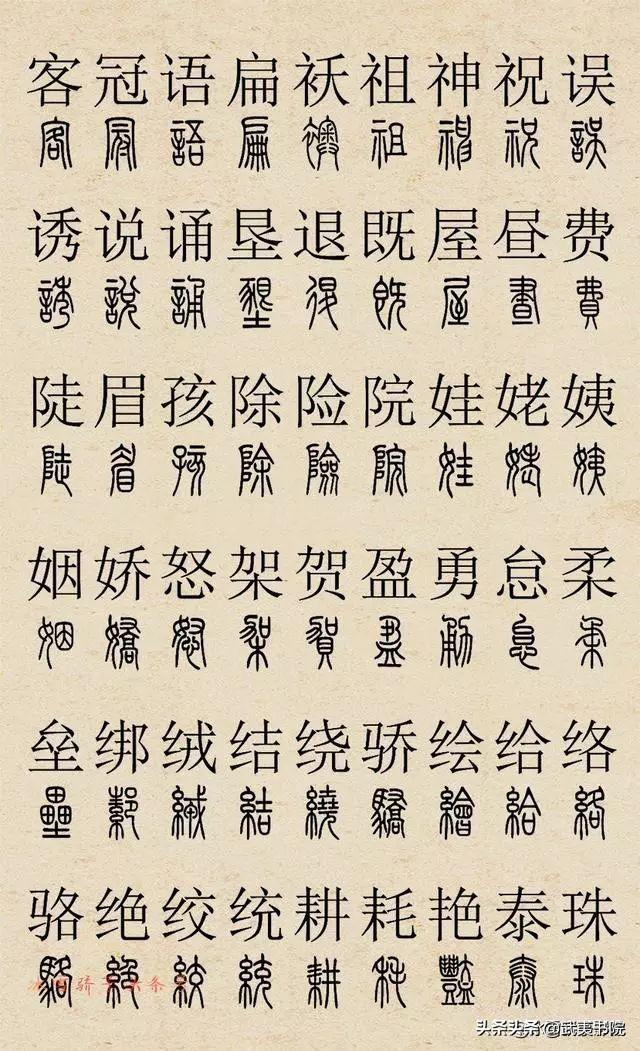 客冠语扁袄祖神祝误
客冠語扁襖祖神祝誤
诱说诵垦退既屋昼费
誘說誦墾退既屋晝費
陡眉孩除险院娃姥姨
陡眉孩除險院娃姥姨
姻娇怒架贺盈勇怠柔
姻嬌怒架賀盈勇怠柔
垒绑绒结绕骄绘给络
壘綁絨結繞驕繪給絡
骆绝绞统耕耗艳泰珠
駱絕絞統耕耗豔泰珠
头条头条@武夷书院